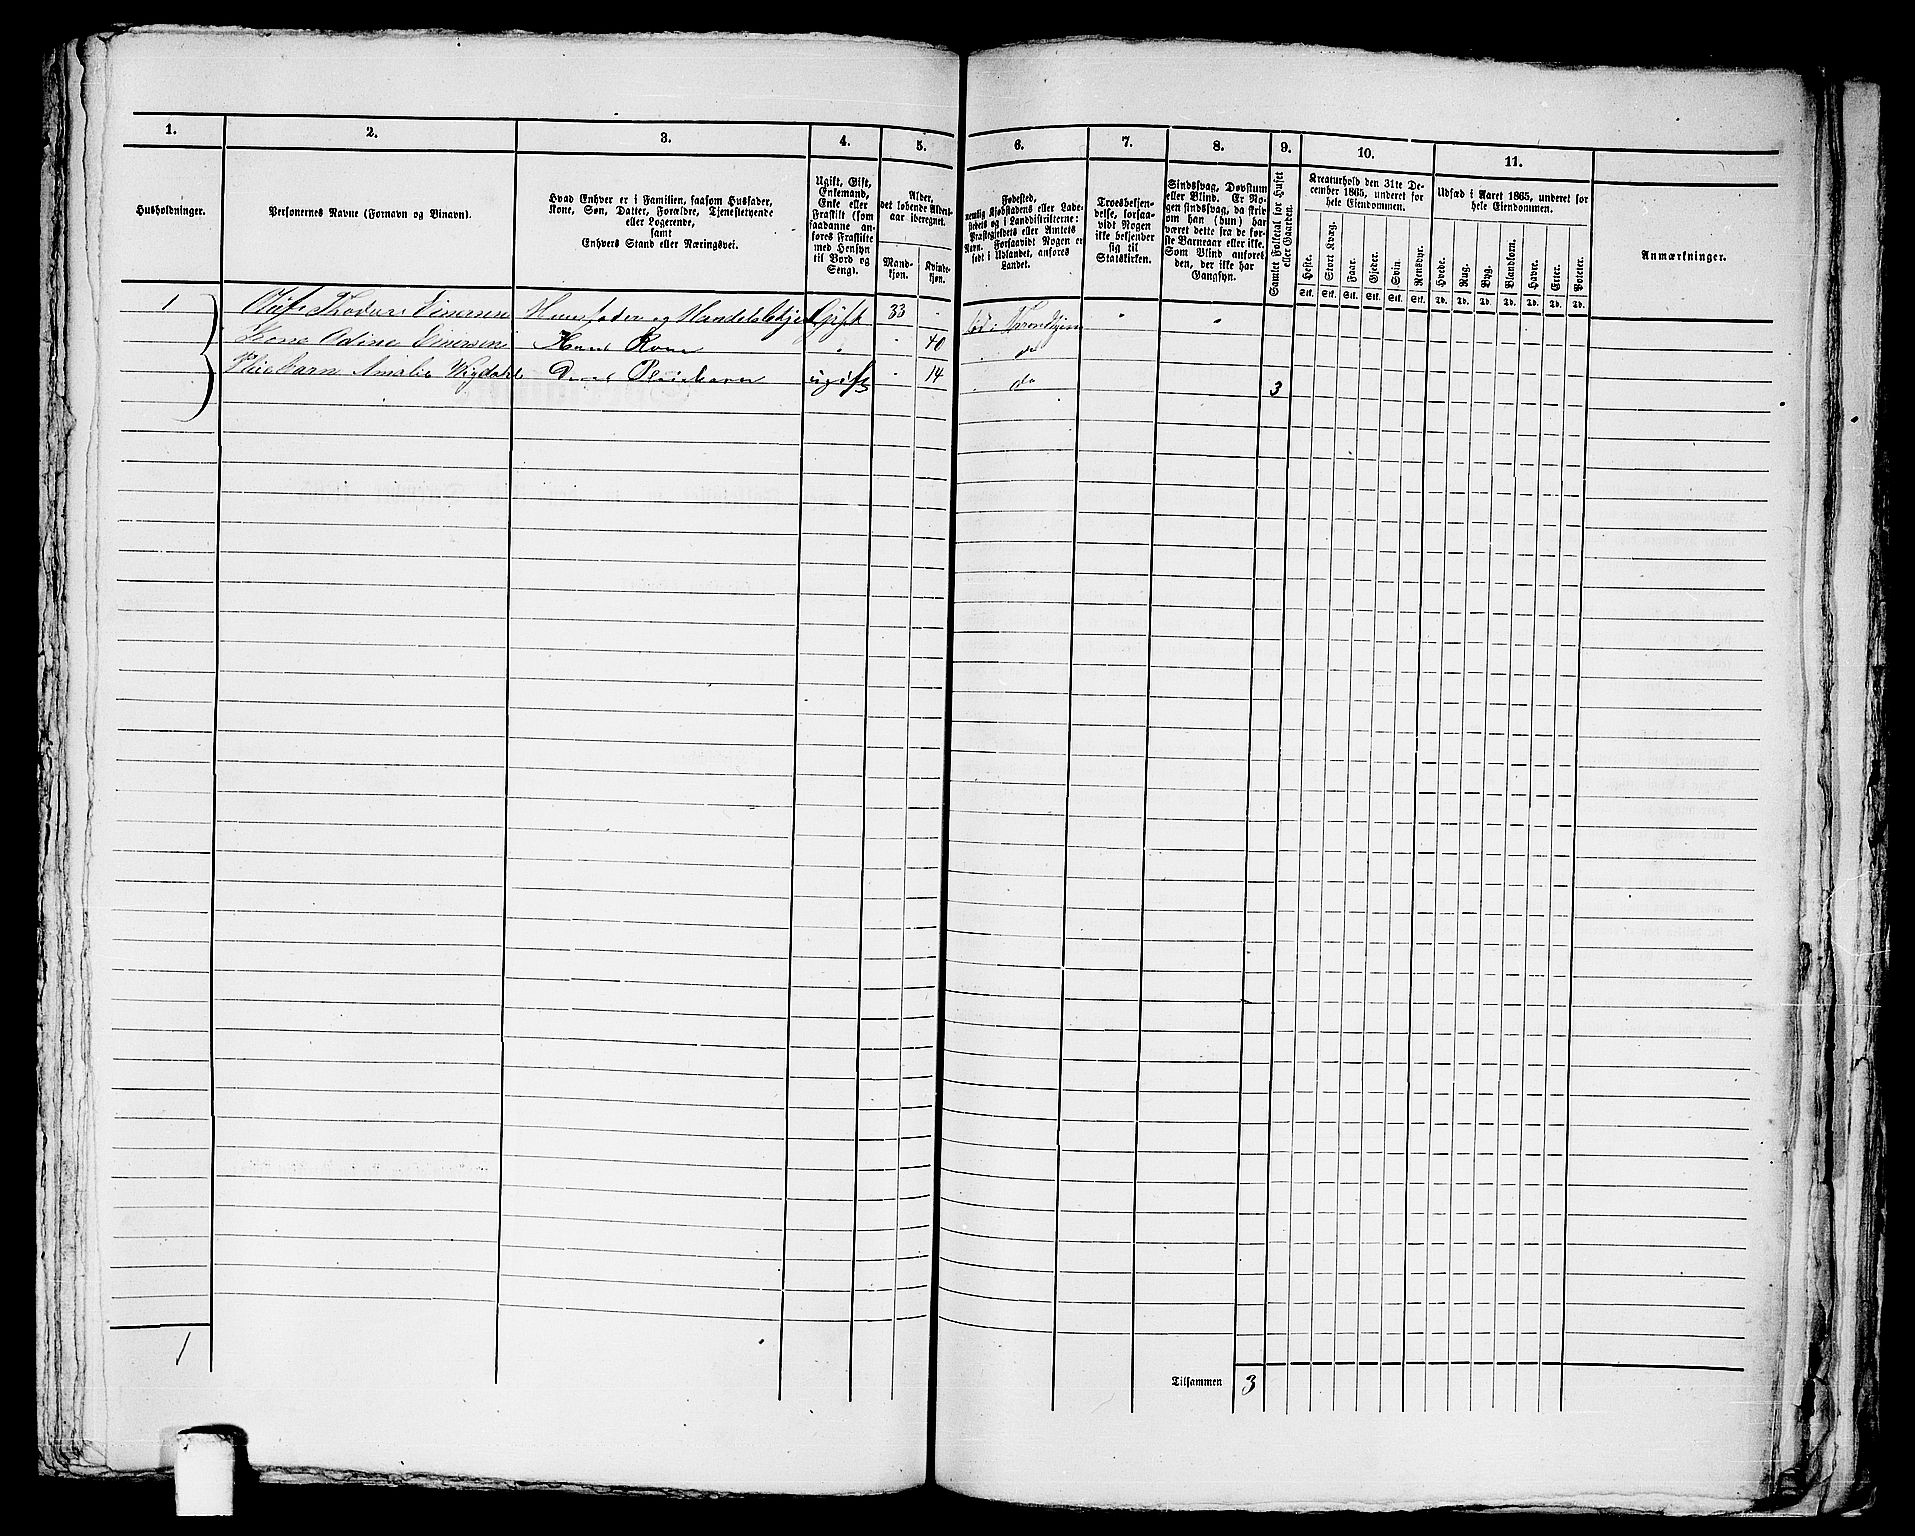 1.
2.
3.
4.
5.
6.
7.
8.
9.
10.
11.
Husholdninger.
Personernes Navne (Fornavn og Binavn).
Hvad Enhver er i Familien, saasom Husfader,
Kone, Søn, Datter, Forældre, Tjenestetyende
eller Logerende,
samt
Enhvers Stand eller Næringsvei.
Ugift, Gift,
Enkemand,
Enke eller
Fraskilt (som
saadanne an-
føres Fraskilte
med Hensyn
til Bord og
Seng).
Alder,
det løbende Alders-
aar iberegnet.
Mand-
kjøn.
Kvinde-
kjøn.
Fødested,
nemlig Kjøbstadens eller Lade-
stedets og i Landdistrikterne:
Præstegjeldets eller Amtets
Navn. Forsaavidt Nogen er
født i Udlandet, anføres
Landet.
Troesbekjen-
delse, forsaa-
vidt Nogen
ikke bekjender
sig til
Statskirken.
Sindssvag, Døvstum
eller Blind. Er No-
gen sindssvag, da skriv
om han (hun) har
været dette fra de før-
ste Barneaar eller ikke.
Som Blind anføres
den, der ikke har
Gangsyn.
Samlet Folketal for Huset
eller Gaarden.
Kreaturhold den 31te De-
cember 1865, underet for
hele Eiendommen.
Heste.
Stort Kvæg.
Faar.
Gjeder.
Svin.
Rensdyr.
Stk. Stk. Stk. Stk. Stk. Stk.
Udsæd i Aaret 1865, underet for
hele Eiendommen.
Hvede.
Rug.
Byg.
Blandkorn.
Havre.
Erter.
Poteter.
Td. Td. Td. Td. Td. Td. Td.
Anmærkninger.
1 Einersen Huusfader og Gift 33 - Trondhjem " "
Kone Odine Einersen Hans Kone " 40 do
Pleiebarn Amalie Wigdahl Deres Pleiebarn ugift - 14 do 3
1
Tilsammen 3